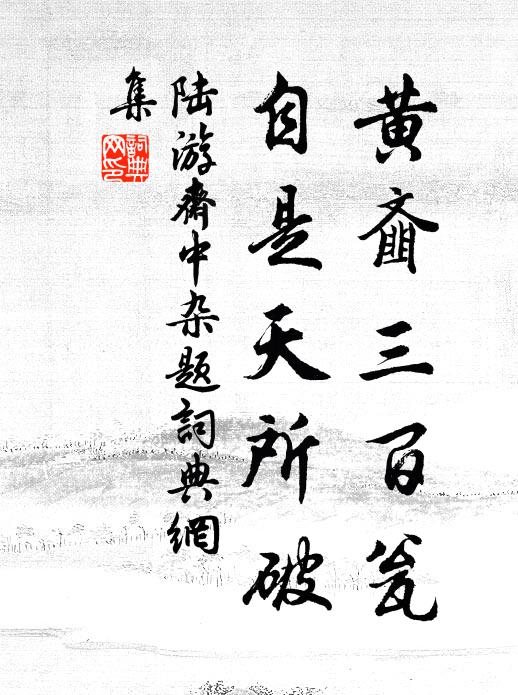 黄齑三百瓮
自是天所破
陆游齋中杂题詞典網
集
詞典
网印